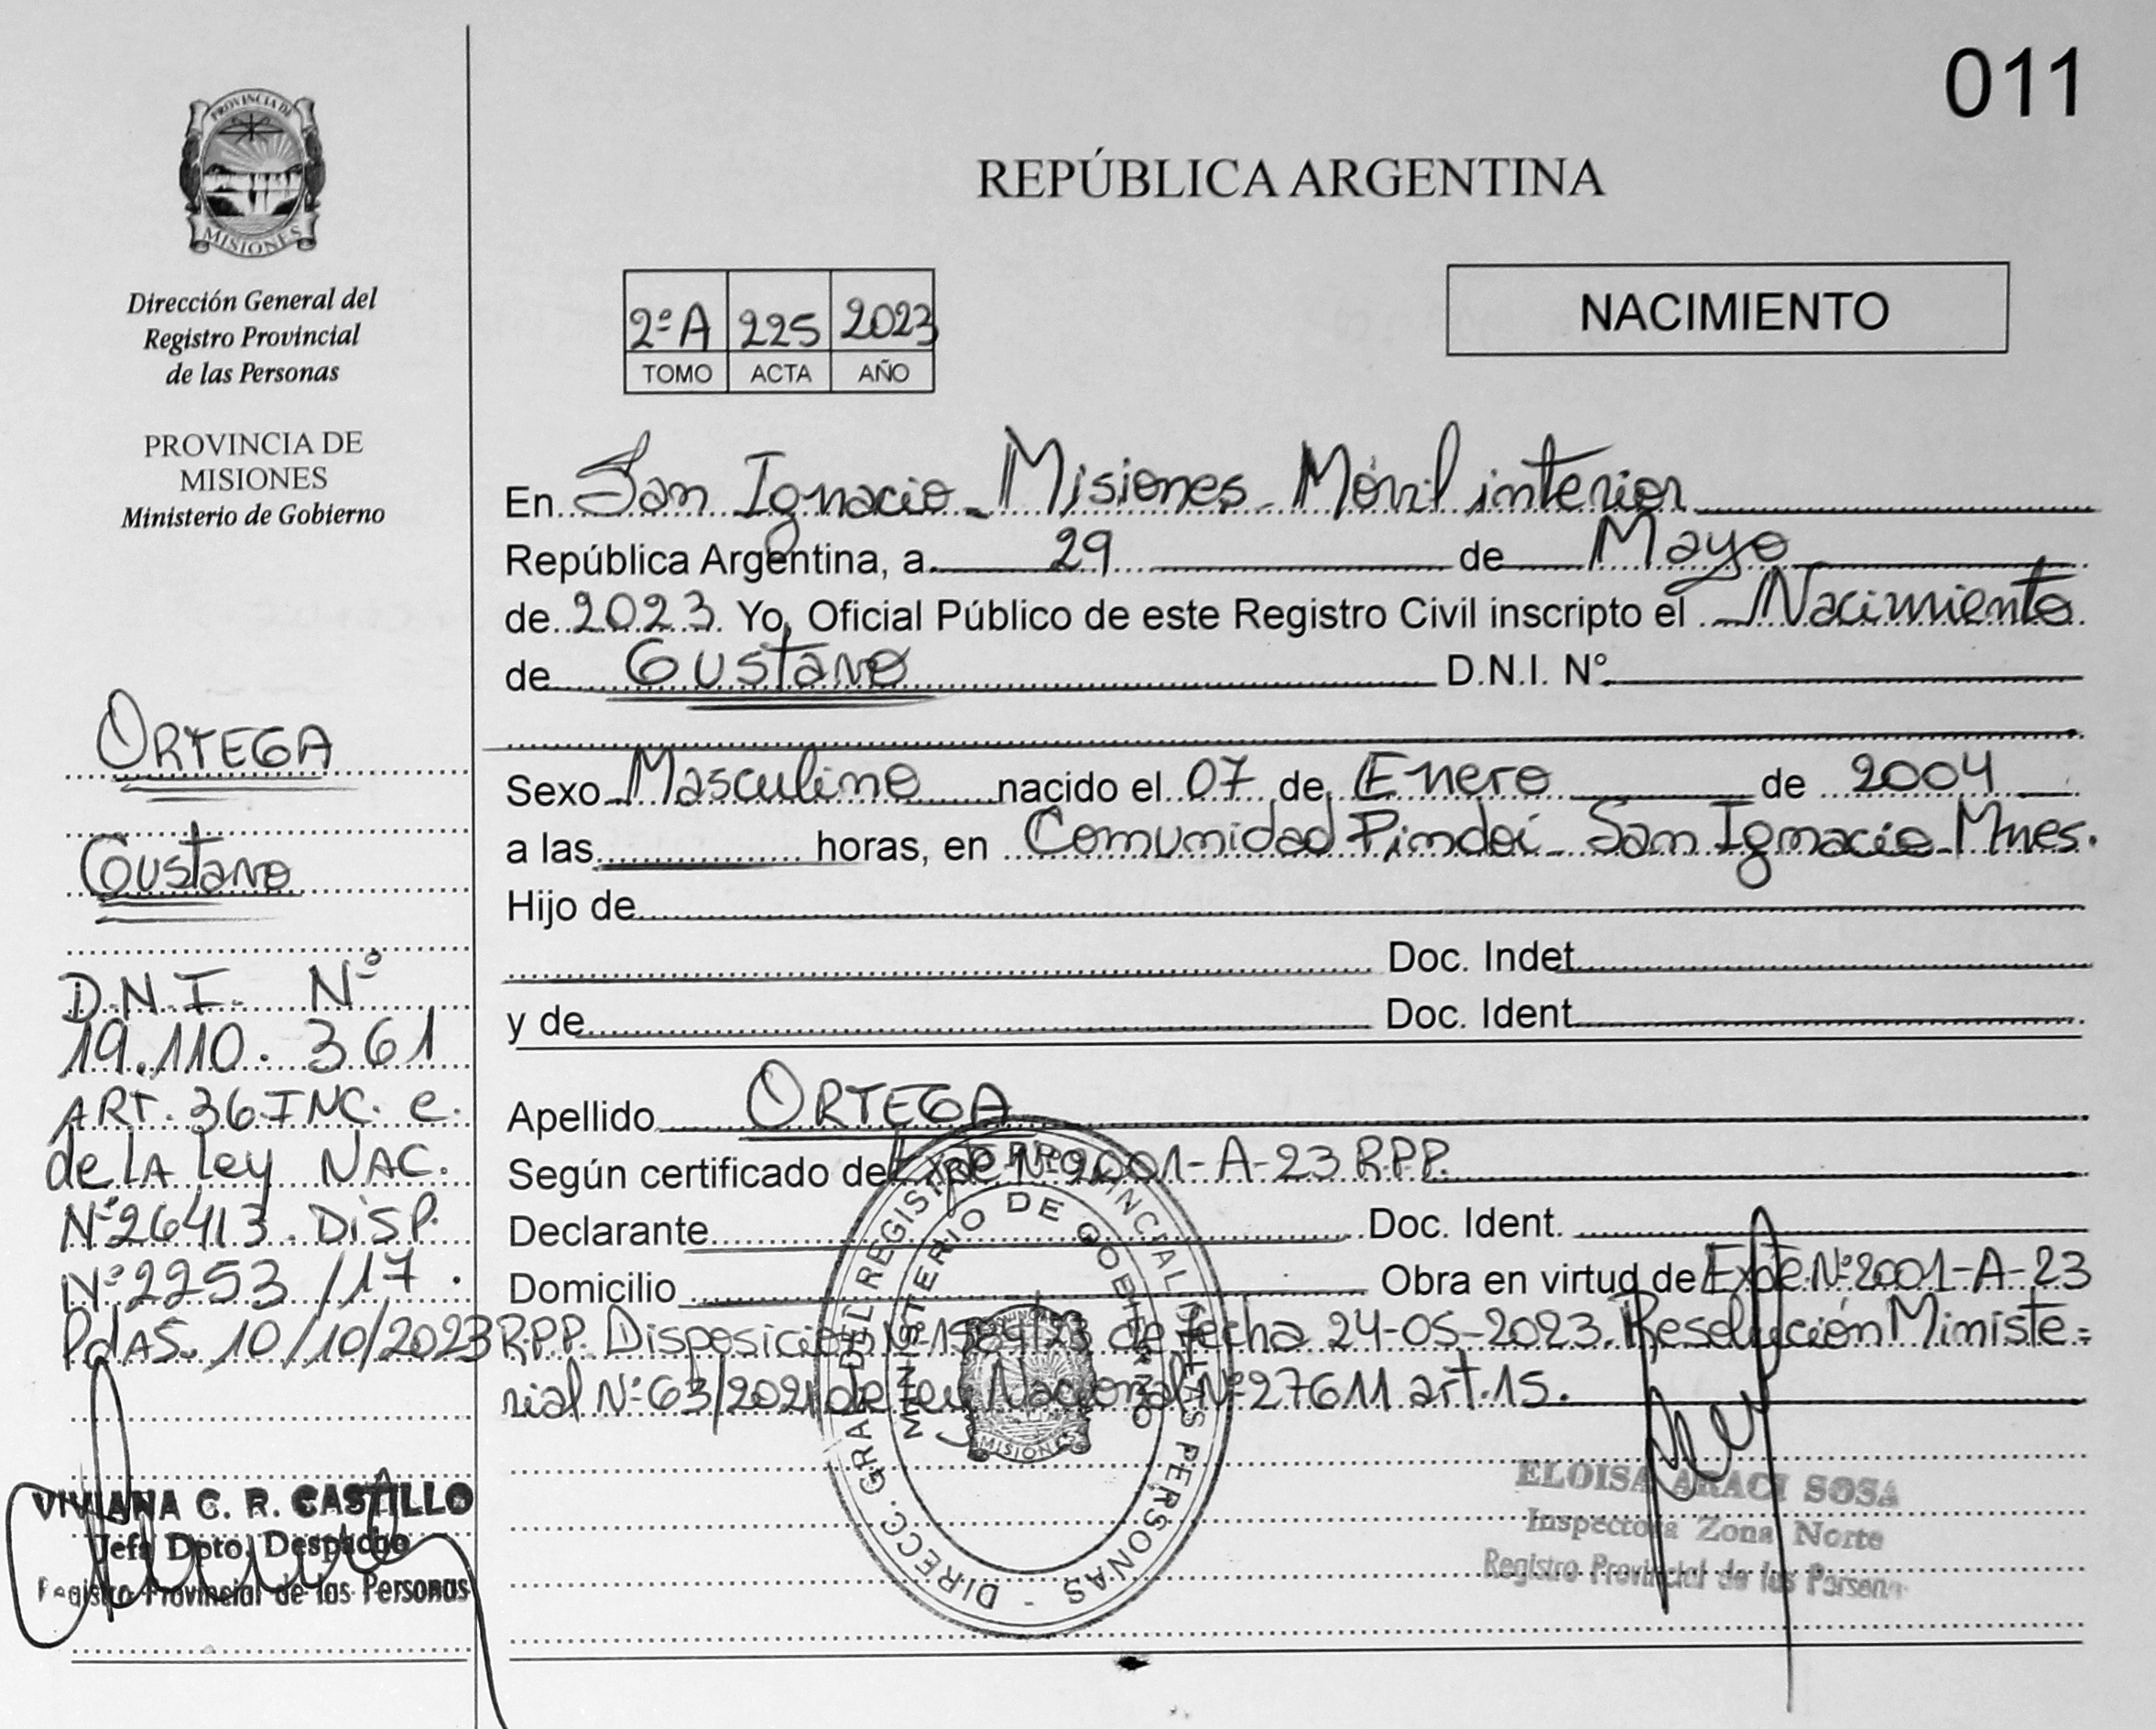 011
PROVINCIA DE
MISIONES
Dirección General del
Registro Provincial
de las Personas
PROVINCIA DE
MISIONES
Ministerio de Gobierno
ORTEGA
Gustavo
D.N.I. Nº
19.110.361
ART. 36 INC. e.
de lA ley NAC.
Nº 26413. DiSP.
Nº 2253/17.
PdAS. 10/10/2023
VIVIANA C. R. CASTILLO
Jefa Dpto. Despacho
Registro Provincial de las Personas
REPÚBLICA ARGENTINA
2º A 225 2023
TOMO ACTA AÑO
NACIMIENTO
En San Ignacio - Misiones - Móvil interior
República Argentina, a 29 de Mayo
de 2023. Yo, Oficial Público de este Registro Civil inscripto el Nacimiento
de Gustavo D.N.I. N°
Sexo Masculino nacido el 07 de Enero de 2004
a las horas, en Comunidad Pindoí - San Ignacio - Mnes.
Hijo de
Doc. Indet
y de Doc. Ident
Apellido ORTEGA
Según certificado de Expe Nº 2001-A-23 R.P.P.
Declarante Doc. Ident.
Domicilio Obra en virtud de Expe. Nº 2001-A-23
R.P.P. Disposición Nº de fecha 24-05-2023. Resolución Ministe=
rial Nº 63/2021 de Ley Nacional Nº 27611 art. 15.
DIRECC. GRAL DEL REGISTRO PROVINCIAL DE LAS PERSONAS -
MINISTERIO DE GOBIERNO
MISIONES
ELOISA ARACI SOSA
Inspectora Zona Norte
Registro Provincial de las Persona